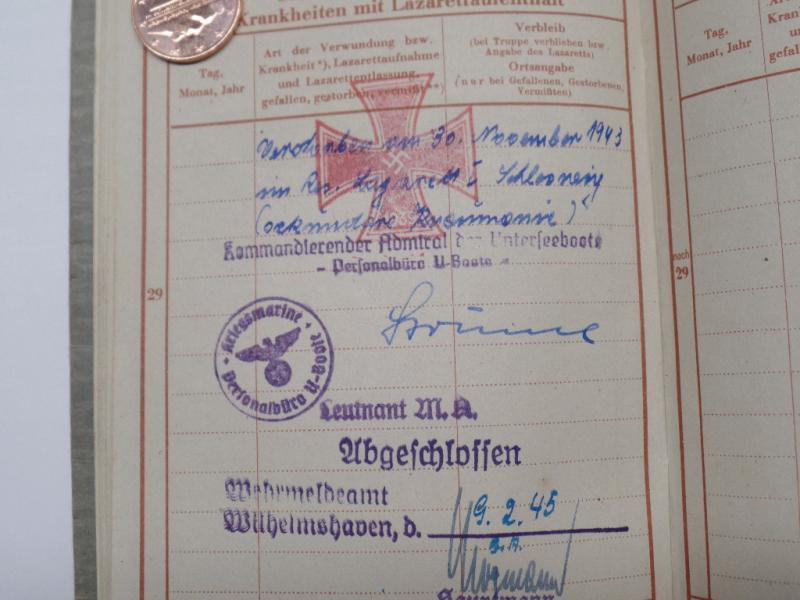 Krankheiten mit Lazarettaufenthalt
Tag, Monat, Jahr
Art der Verwundung bzw.
Krankheit*), Lazarettaufnahme
und Lazarettentlassung,
gefallen, gestorben, vermißt**)
Verbleib
(bei Truppe verblieben bzw.
Angabe des Lazaretts)
Ortsangabe
(nur bei Gefallenen, Gestorbenen,
Vermißten)
Tag,
Monat, Jahr
Verstorben am 30. November 1943
im Res. Lazarett Schleswig
(sekundäre Pneumonie)
Kommandierender Admiral der Unterseeboote
- Personalbüro U-Boote -
29
noch
29
Kriegsmarine
Personalbüro U-Boote
Leutnant M.A.
Abgeschlossen
Wehrmeldeamt
Wilhelmshaven, d. 9. 2. 45